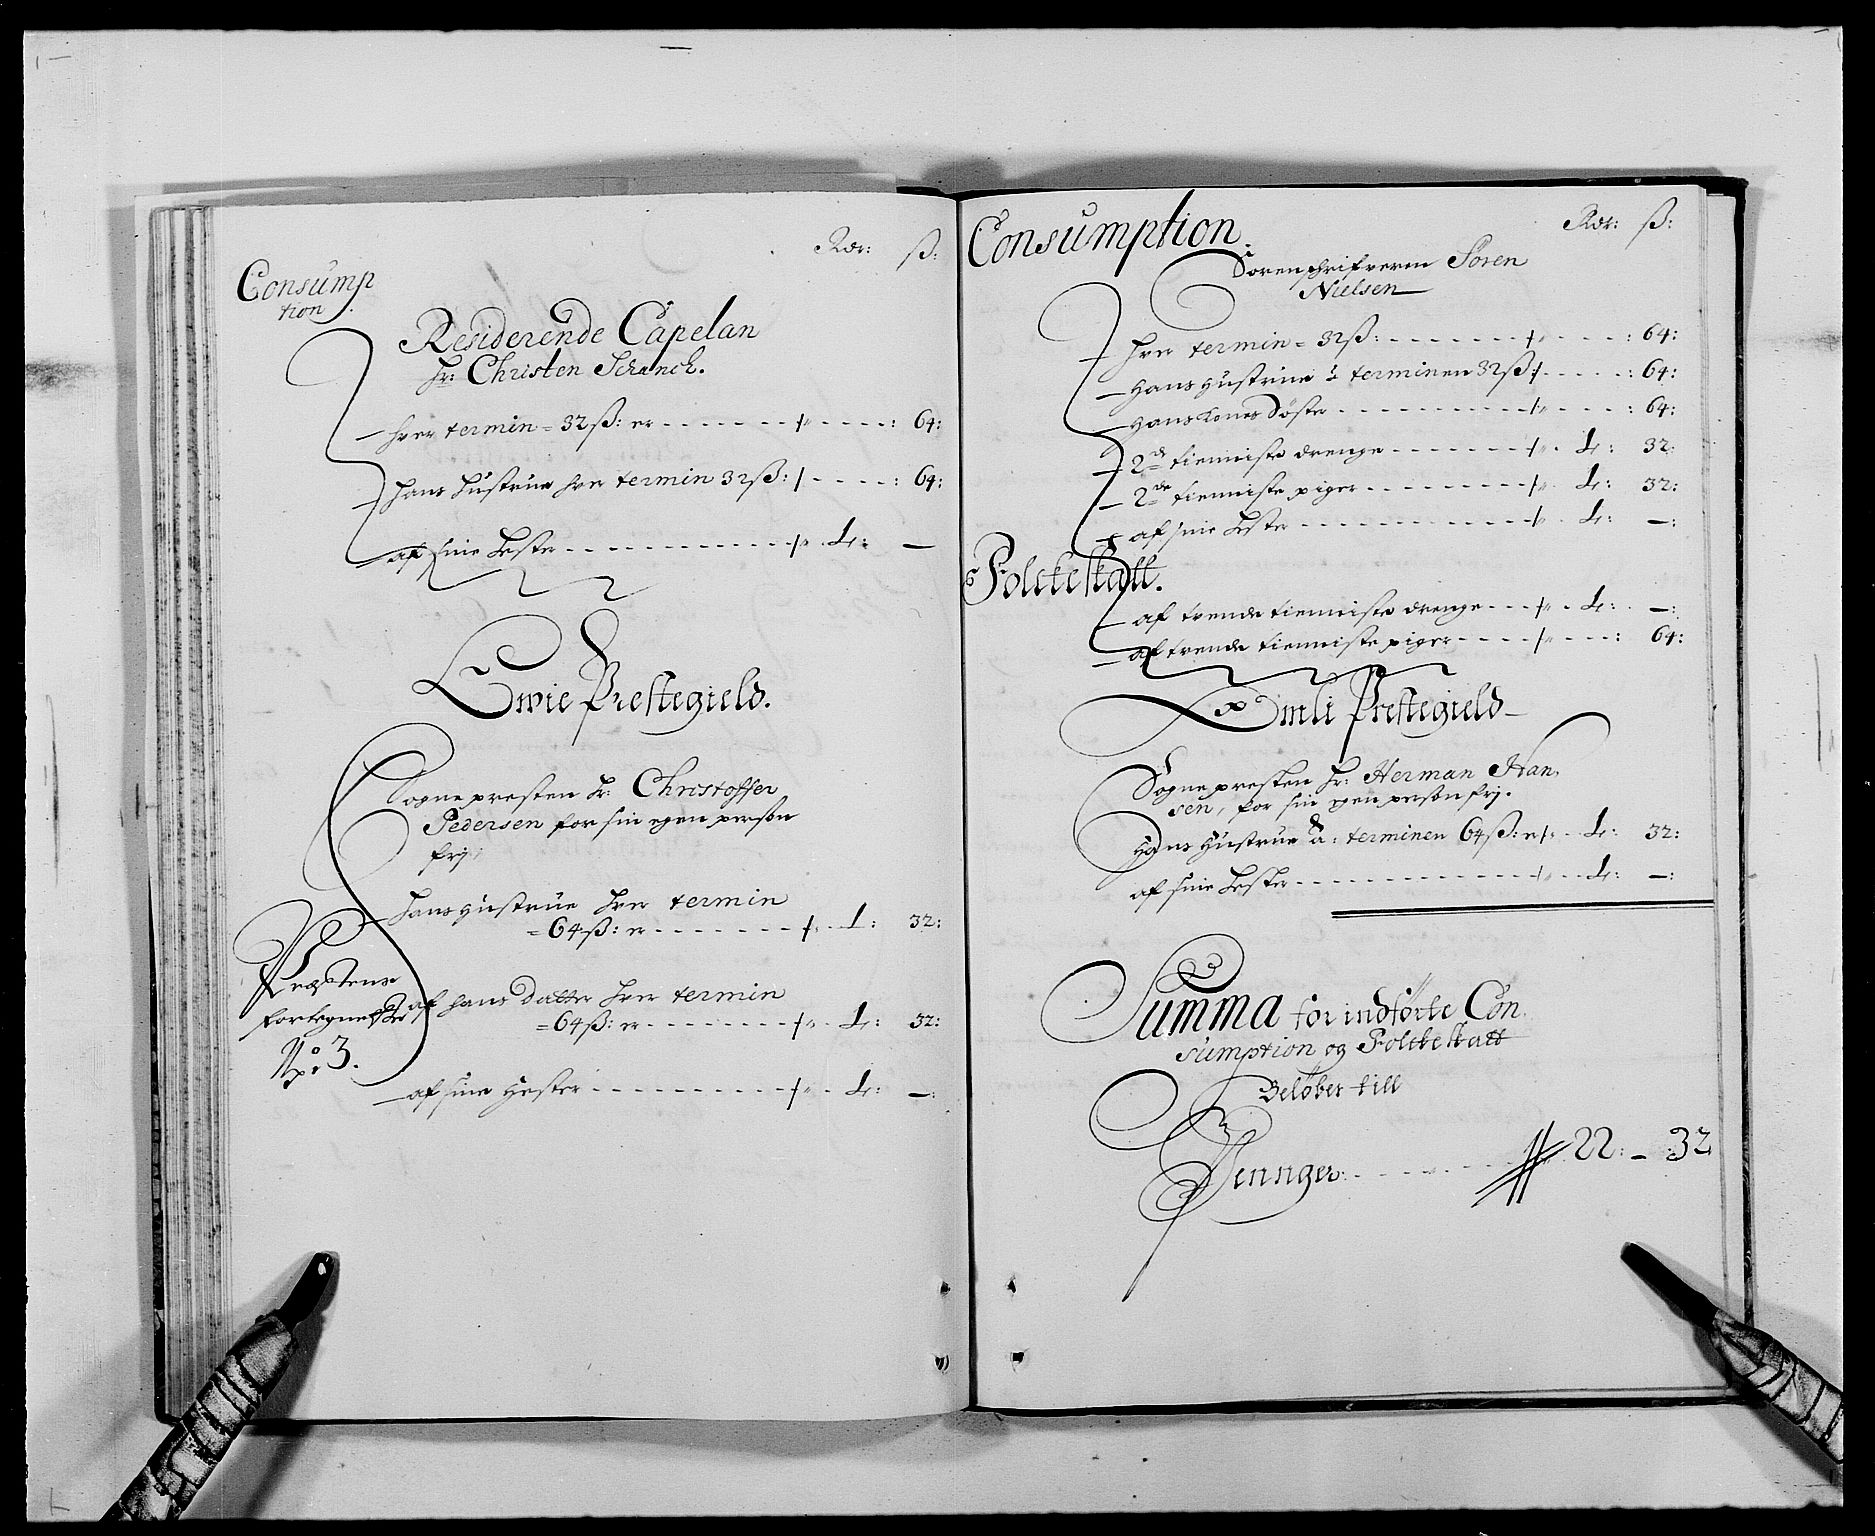 Rdr: ß:
Consump
tion.
Residerende Capelan
Hr: Christen Schanch.
hver termin = 32 ß: er - - - - 64:
hans hustrue hver termin 32 ß: - - - - 64:
af sine heste - - - - 1: —
Ewie Prestegield.
Sognepresten Hr: Christoffer
Pedersen for sin egen person
frj
hans hustrue hver termin
= 64 ß: er - - - - 1: 32:
Præstens
fortegnelse
No: 3.
af hans datter hver termin
= 64 ß: er - - - - 1: 32:
af sine hester - - - - 1: —:
Consumption. Rdr: ß:
Sorenschrifveren Sören
Nielsen
hver termin = 32 ß: - - - - : 64:
hans hustrue â terminen 32 ß: - - - - : 64:
hans kones Söster - - - - : 64:
2de tienniste drenge - - - - 1: 32:
2de tienniste piger - - - - 1: 32:
af sine hester - - - - 1: —:
Folckeskatt.
af trende tienniste drenge - - - - 1: —:
af trende tienniste piger - - - - : 64:
Omli Prestegield
Sognepresten Hr: Herman Han
sen, for sin egen person frj.
Hans Hustrue â: terminen 64 ß: er - - 1: 32:
af sine hester - - - - 1: —:
Summa for indförte Con
sumption og Folckeskatt
Belöber till
Pennger: - - - - 22: — 32